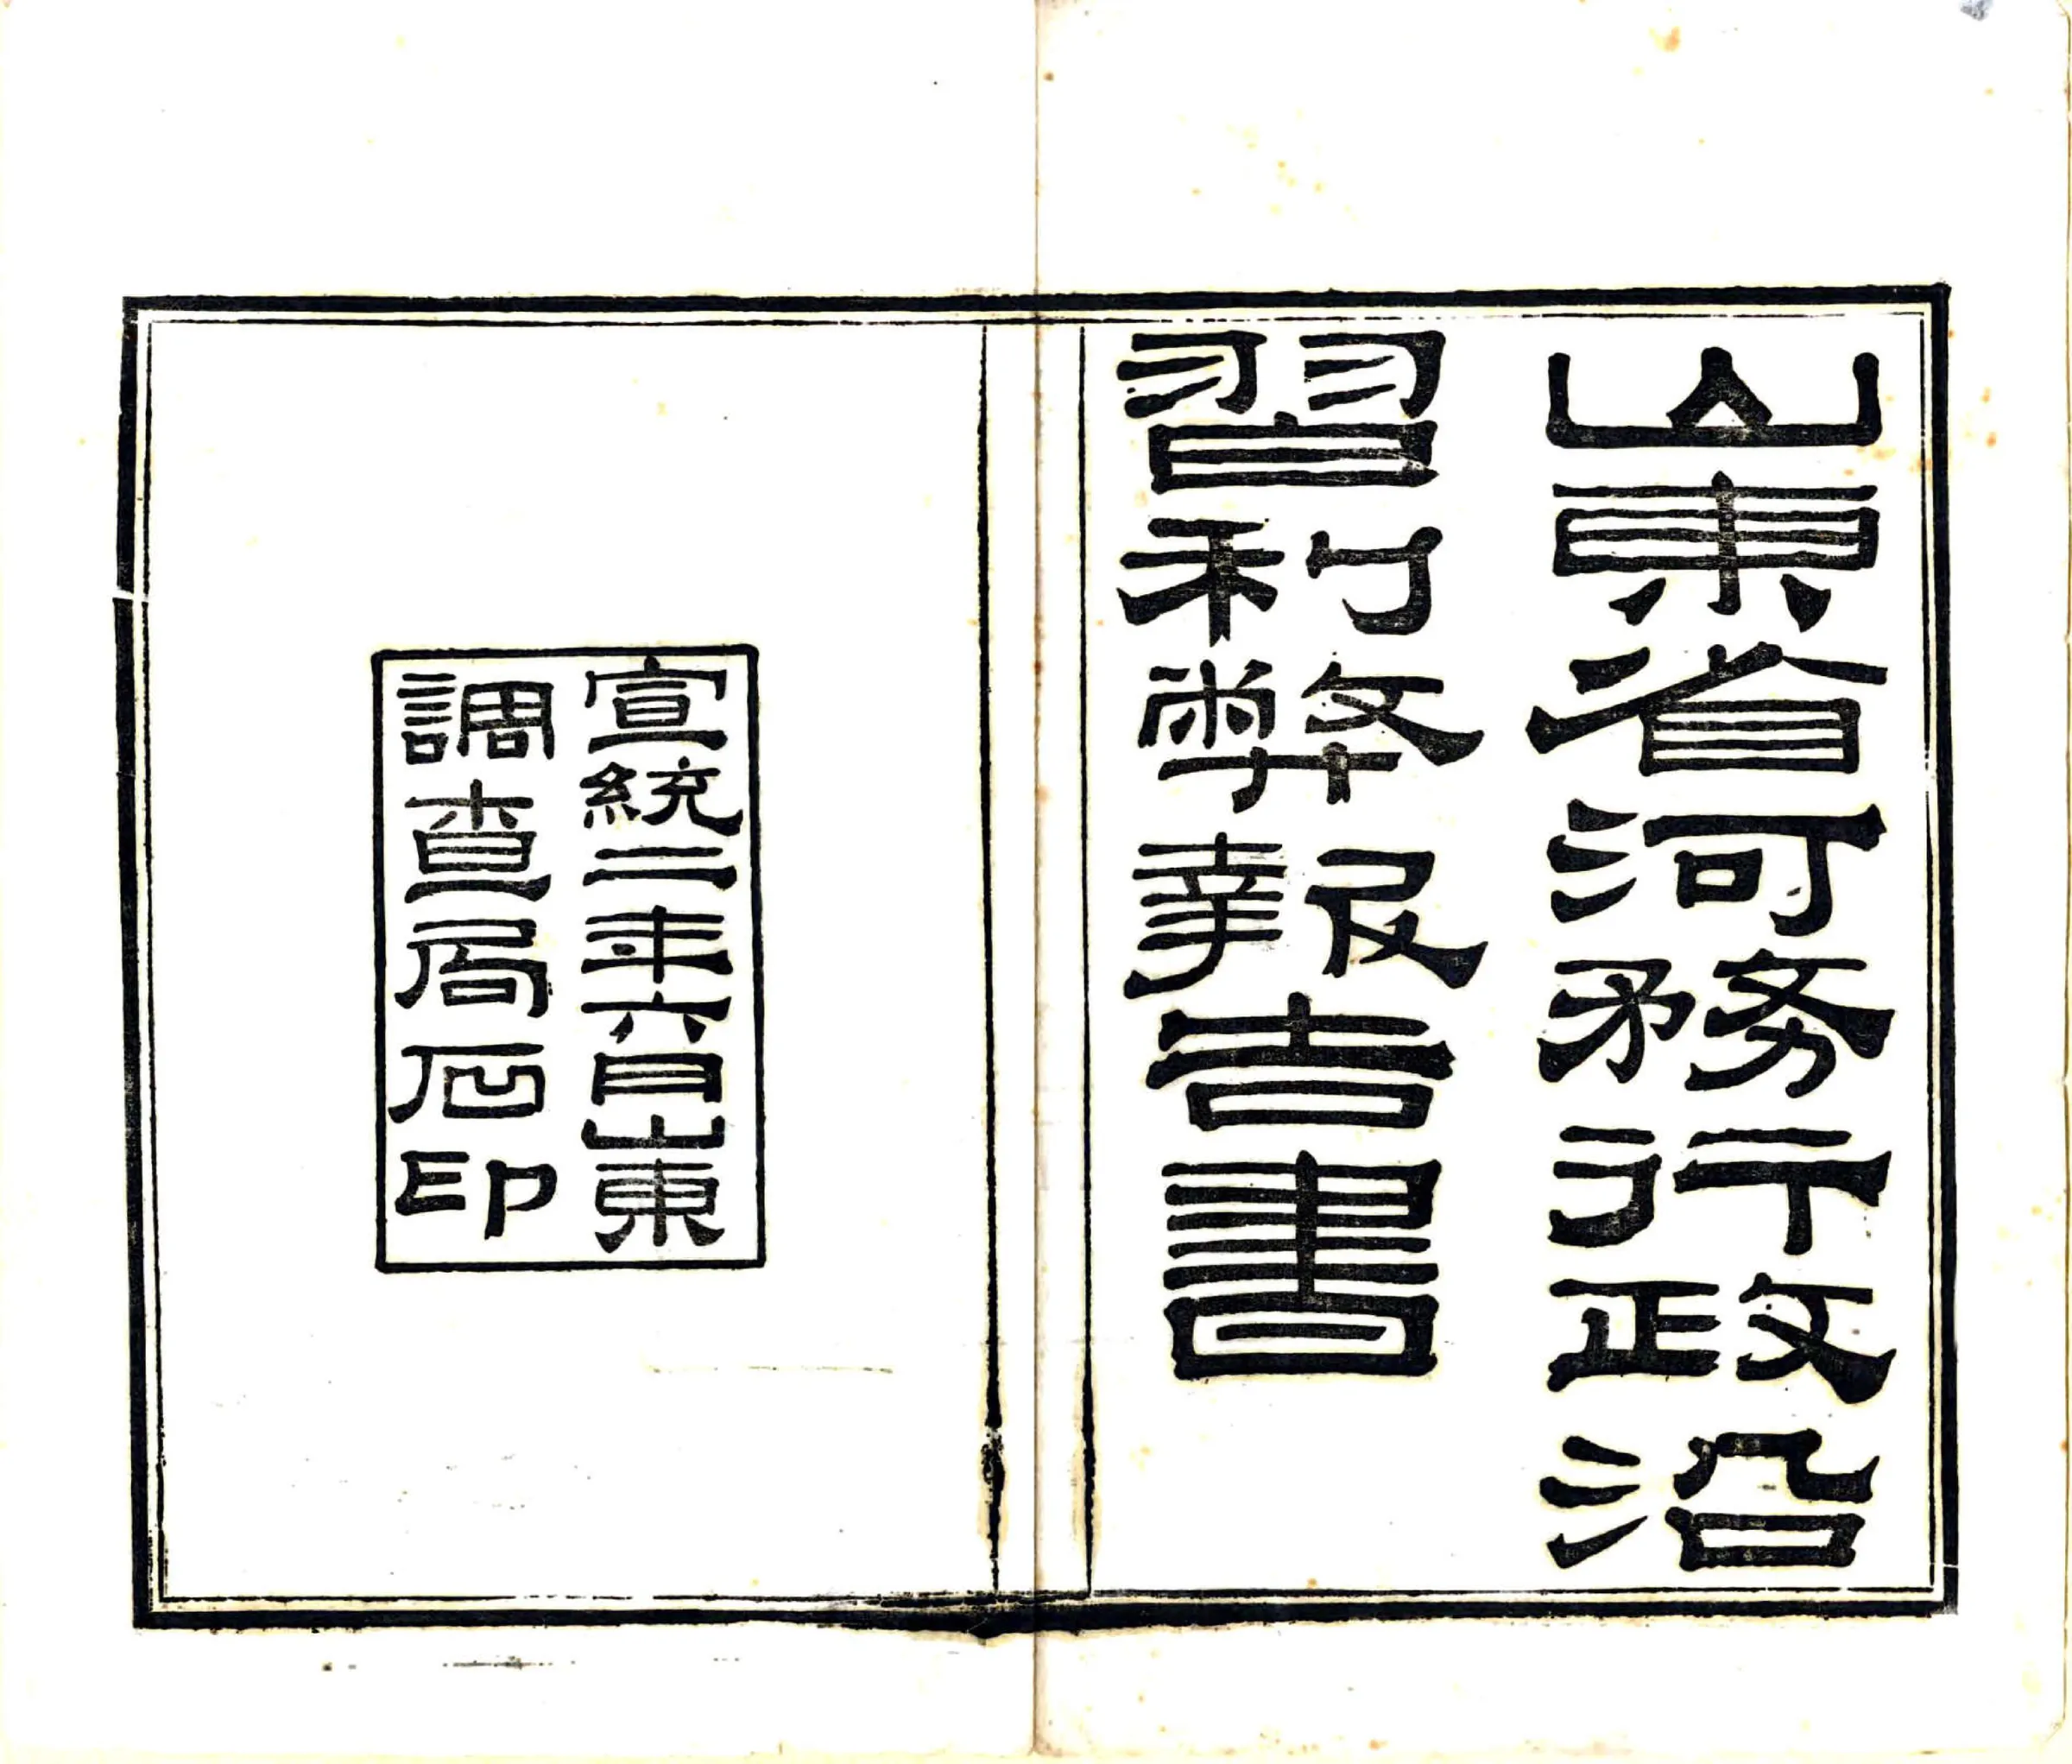 山東省河務行政沿
習利弊報告書
宣統二年六月山東
調查局石印